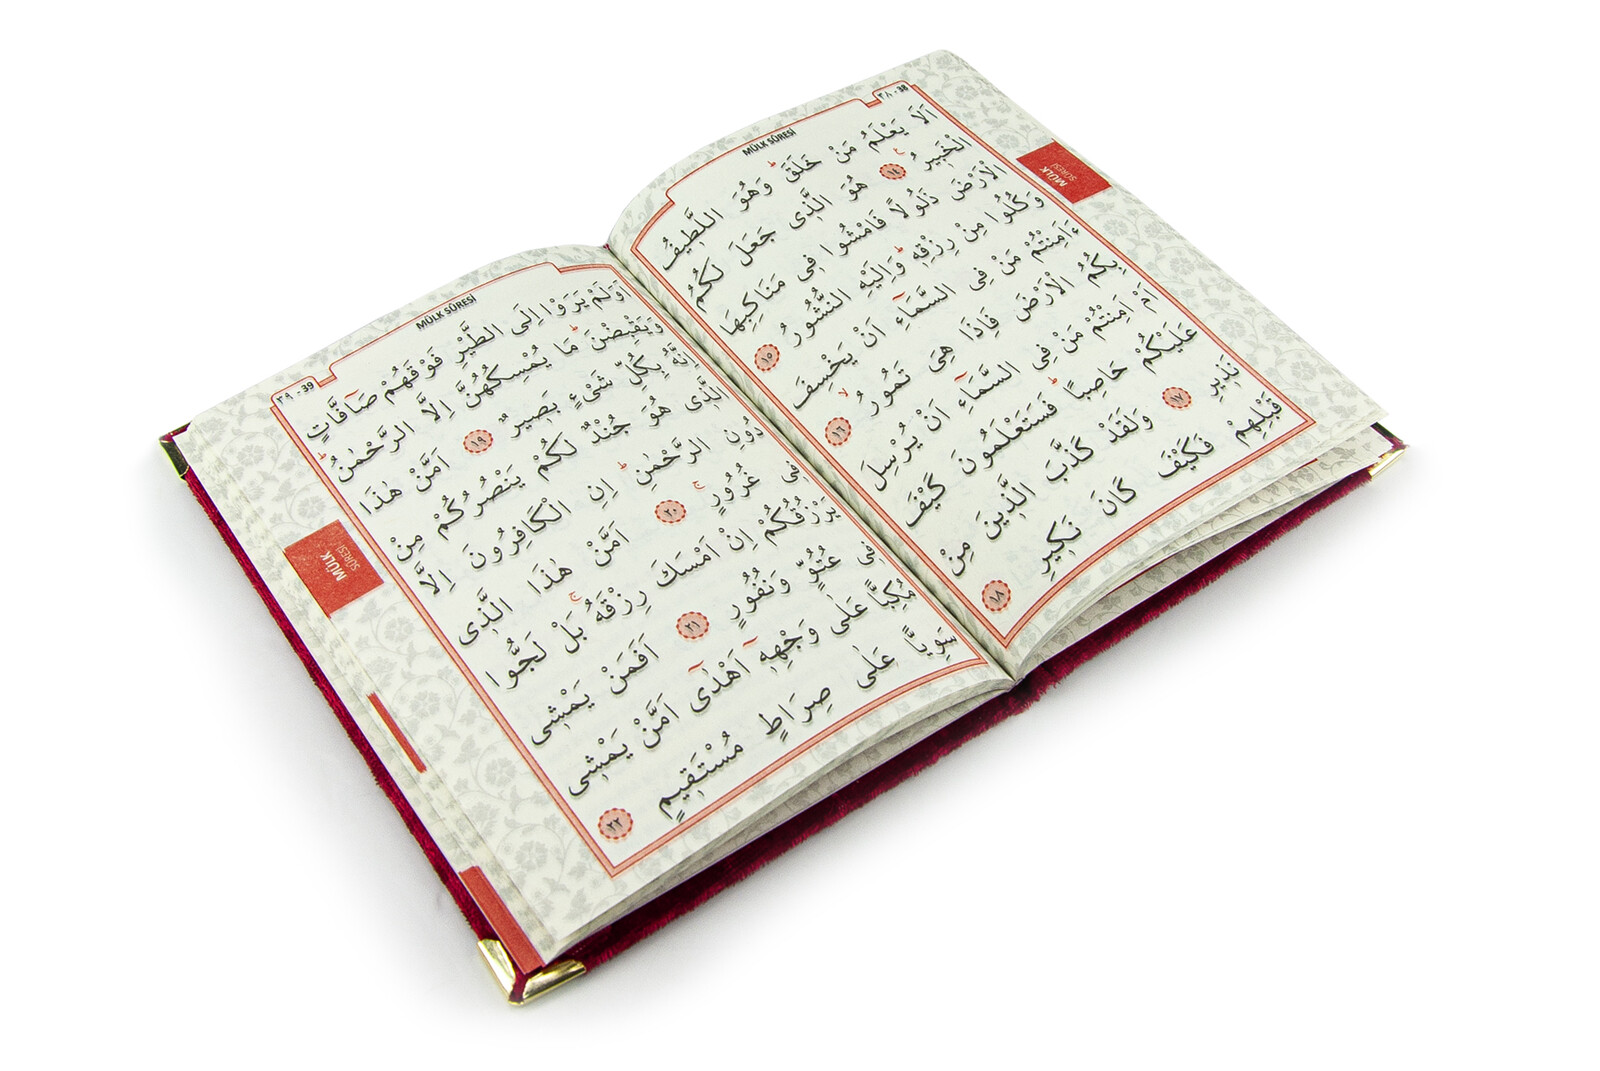 ٣٨ - 38
MÜLK SÛRESİ
اَلَا يَعْلَمُ مَنْ خَلَقَۜ وَهُوَ اللَّط۪يفُ
الْخَب۪يرُ ﴿١٤﴾ هُوَ الَّذ۪ى جَعَلَ لَكُمُ
الْاَرْضَ ذَلُولًا فَامْشُوا ف۪ى مَنَاكِبِهَا
وَكُلُوا مِنْ رِزْقِه۪ۜ وَاِلَيْهِ النُّشُورُ ﴿١٥﴾
ءَاَمِنْتُمْ مَنْ فِى السَّمَٓاءِ اَنْ يَخْسِفَ
بِكُمُ الْاَرْضَ فَاِذَا هِىَ تَمُورُۙ ﴿١٦﴾
اَمْ اَمِنْتُمْ مَنْ فِى السَّمَٓاءِ اَنْ يُرْسِلَ
عَلَيْكُمْ حَاصِبًاۜ فَسَتَعْلَمُونَ كَيْفَ
نَذ۪يرِ ﴿١٧﴾ وَلَقَدْ كَذَّبَ الَّذ۪ينَ مِنْ
قَبْلِهِمْ فَكَيْفَ كَانَ نَك۪يرِ ﴿١٨﴾
MÜLK
SÛRESİ
MÜLK SÛRESİ
٣٩ - 39
اَوَلَمْ يَرَوْا اِلَى الطَّيْرِ فَوْقَهُمْ صَٓافَّاتٍ
وَيَقْبِضْنَۜ مَا يُمْسِكُهُنَّ اِلَّا الرَّحْمٰنُۜ
اِنَّهُ بِكُلِّ شَىْءٍ بَص۪يرٌ ﴿١٩﴾ اَمَّنْ هٰذَا
الَّذ۪ى هُوَ جُنْدٌ لَكُمْ يَنْصُرُكُمْ مِنْ
دُونِ الرَّحْمٰنِۜ اِنِ الْكَافِرُونَ اِلَّا
ف۪ى غُرُورٍۚ ﴿٢٠﴾ اَمَّنْ هٰذَا الَّذ۪ى
يَرْزُقُكُمْ اِنْ اَمْسَكَ رِزْقَهُۚ بَلْ لَجُّوا
ف۪ى عُتُوٍّ وَنُفُورٍ ﴿٢١﴾ اَفَمَنْ يَمْش۪ى
مُكِبًّا عَلٰى وَجْهِه۪ٓ اَهْدٰٓى اَمَّنْ يَمْش۪ى
سَوِيًّا عَلٰى صِرَاطٍ مُسْتَق۪يمٍ ﴿٢٢﴾
MÜLK
SÛRESİ